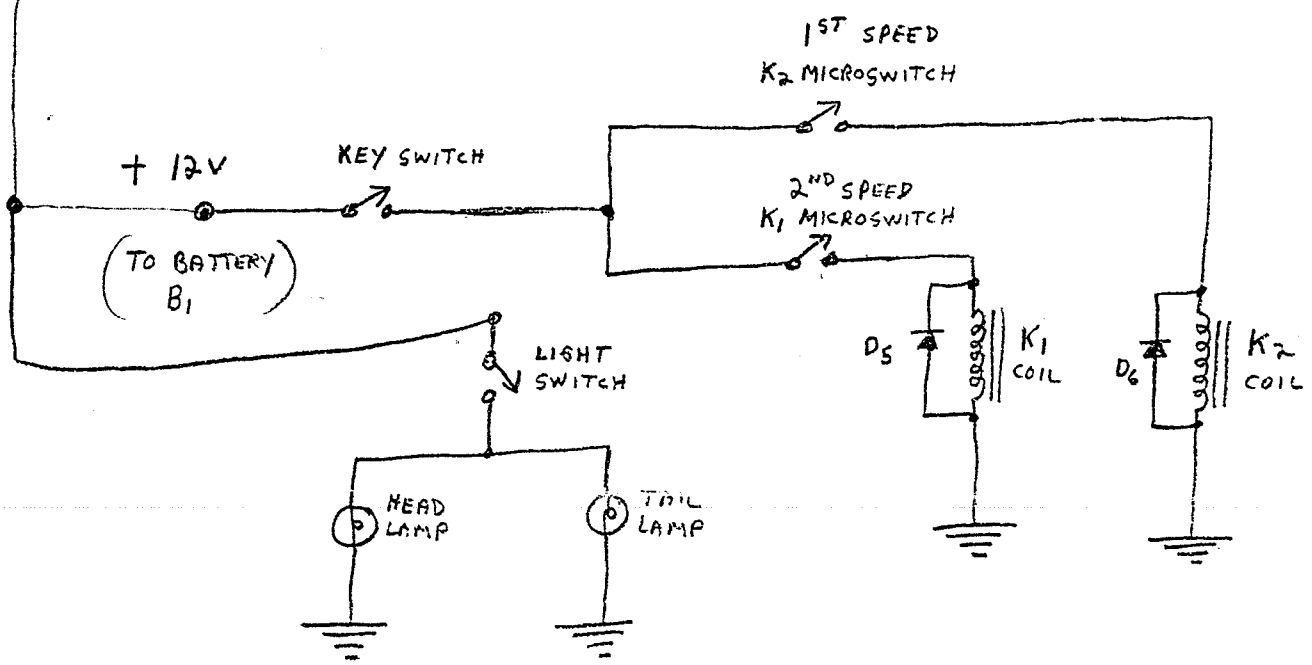 1ST SPEED
K2 MICROSWITCH
+ 12V
KEY SWITCH
2ND SPEED
K1 MICROSWITCH
(TO BATTERY
B1)
LIGHT
SWITCH
D5
K1
COIL
D6
K2
COIL
HEAD
LAMP
TAIL
LAMP